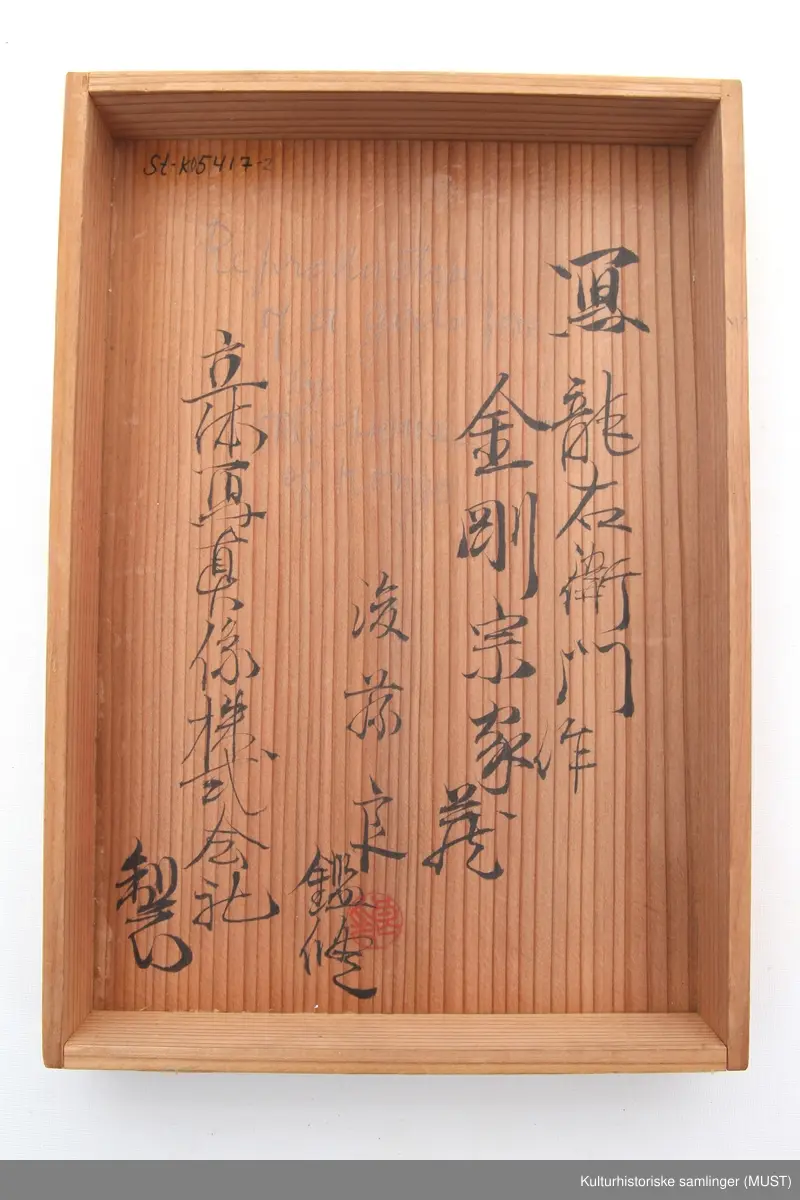 St-K05417-2
Reproduction
of a
by
寫 龍右衛門作
金剛宗家蔵
後藤良
鑑修
立体写真像株式会社
製
Kulturhistoriske samlinger (MUST)